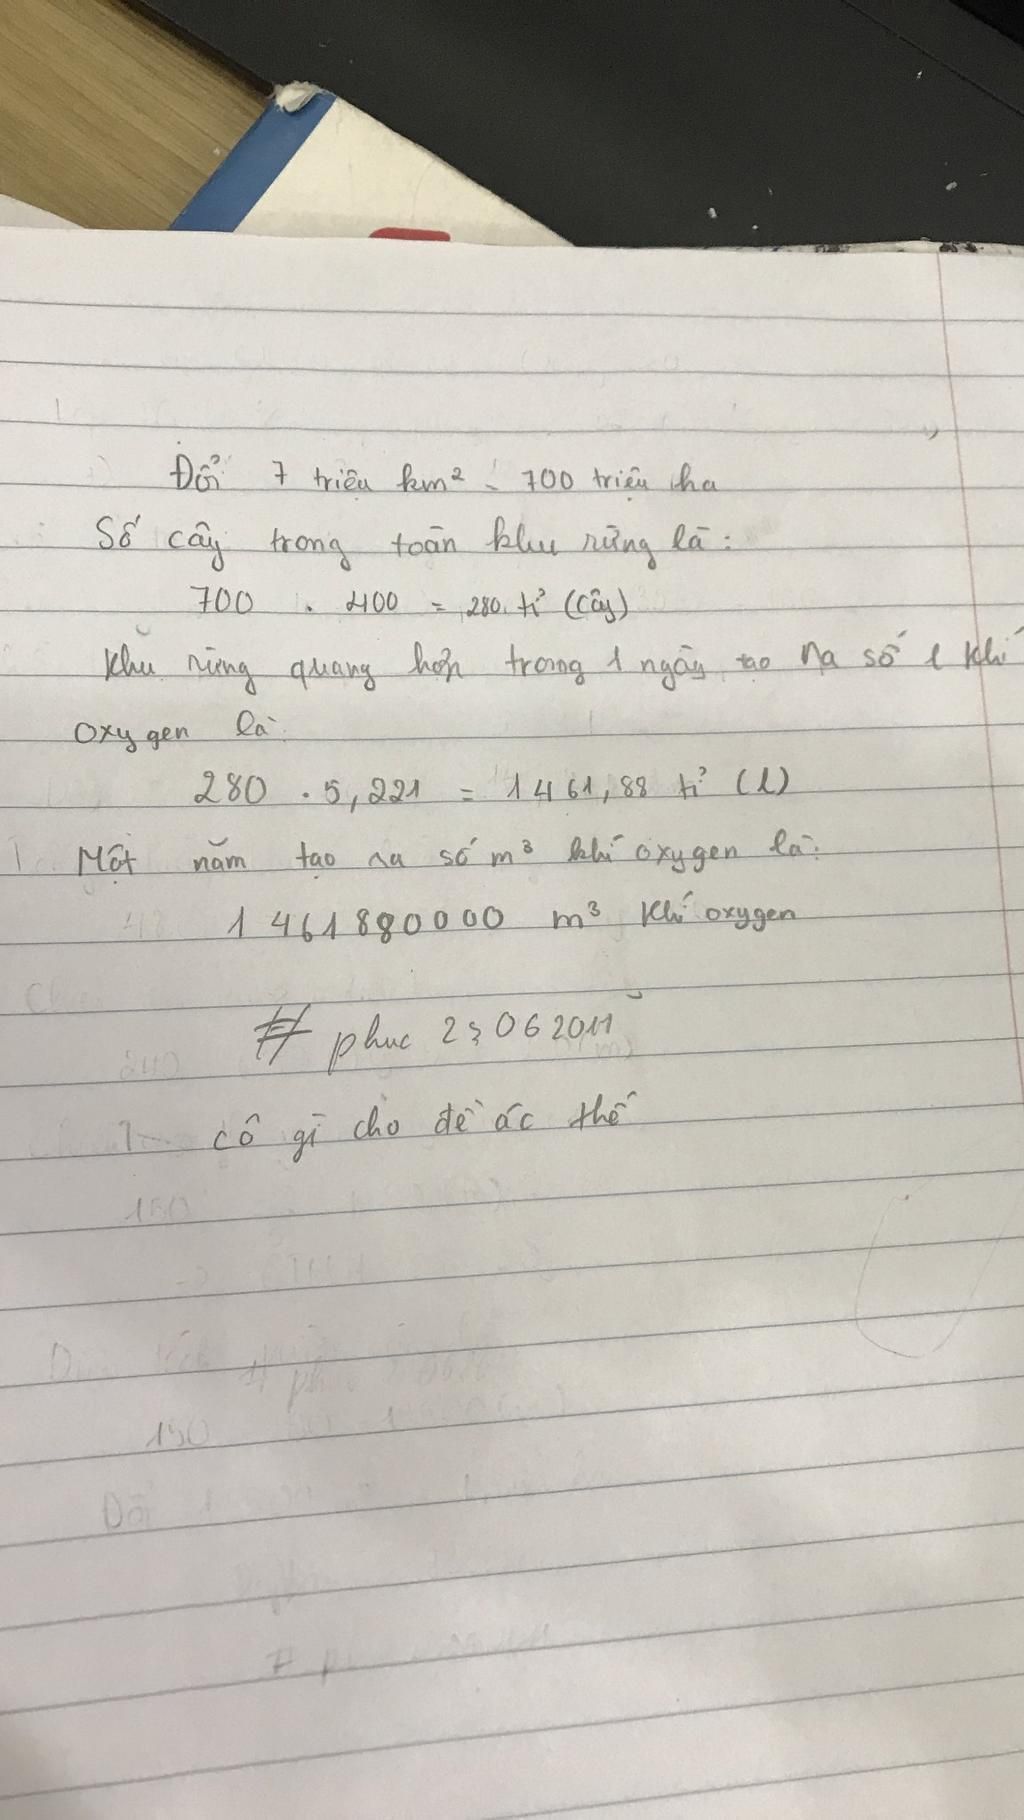 Đổi 7 triệu km² = 700 triệu ha
Số cây trong toàn khu rừng là:
700 . 400 = 280 tỉ (cây)
Khu rừng quang hợp trong 1 ngày tạo ra số l khí
oxygen là:
280 . 5,221 = 1461,88 tỉ (l)
Một năm tạo ra số m³ khí oxygen là:
1461880000 m³ khí oxygen
# phuc 23062011
cô gì cho đề ác thế